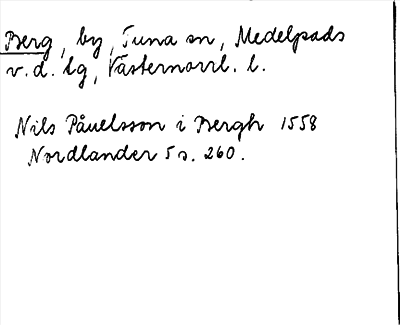 Berg, by, Tuna sn, Medelpads
v. d. lg, Västernorrl. l.
Nils Påuelsson i Bergh 1558
Nordlander 5 s. 260.